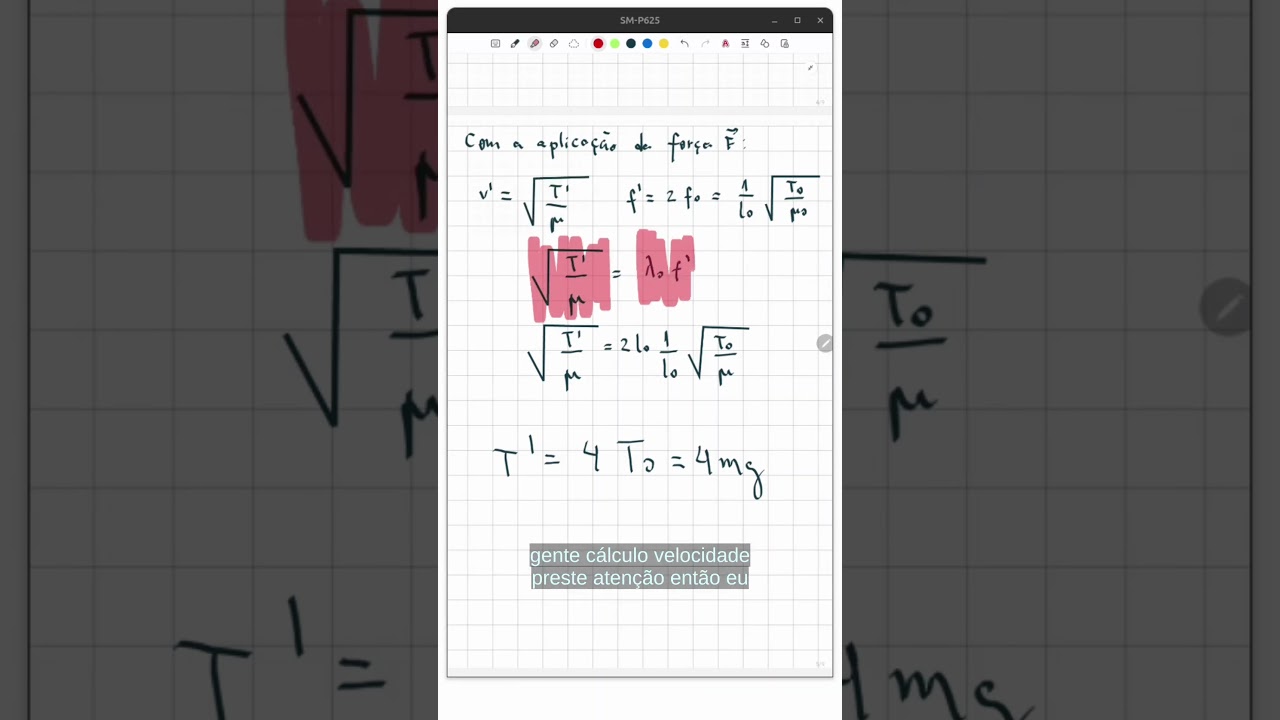 SM-P625
Com a aplicação da força F⃗:
v' = √(T'/μ)   f' = 2 f₀ = 1/l₀ √(T₀/μ₀)
√(T'/μ) = λ₀ f'
√(T'/μ) = 2l₀ 1/l₀ √(T₀/μ)
T' = 4 T₀ = 4mg
gente cálculo velocidade
preste atenção então eu